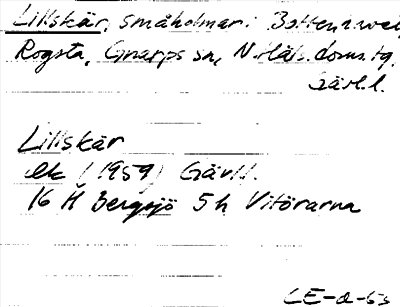 Lillskär, småholmar i Bottenhavet,
Rogsta, Gnarps sn, N.Häls. doms.tg,
Gävl.l.
Lillskär
ek (1959) Gävl.l.
16 H Bergsjö 5 h Vitörarna
LE-a-63